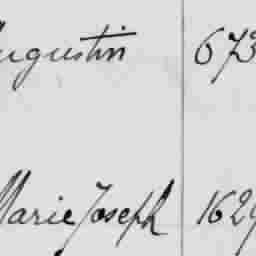 Augustin 673
Marie Joseph 1629